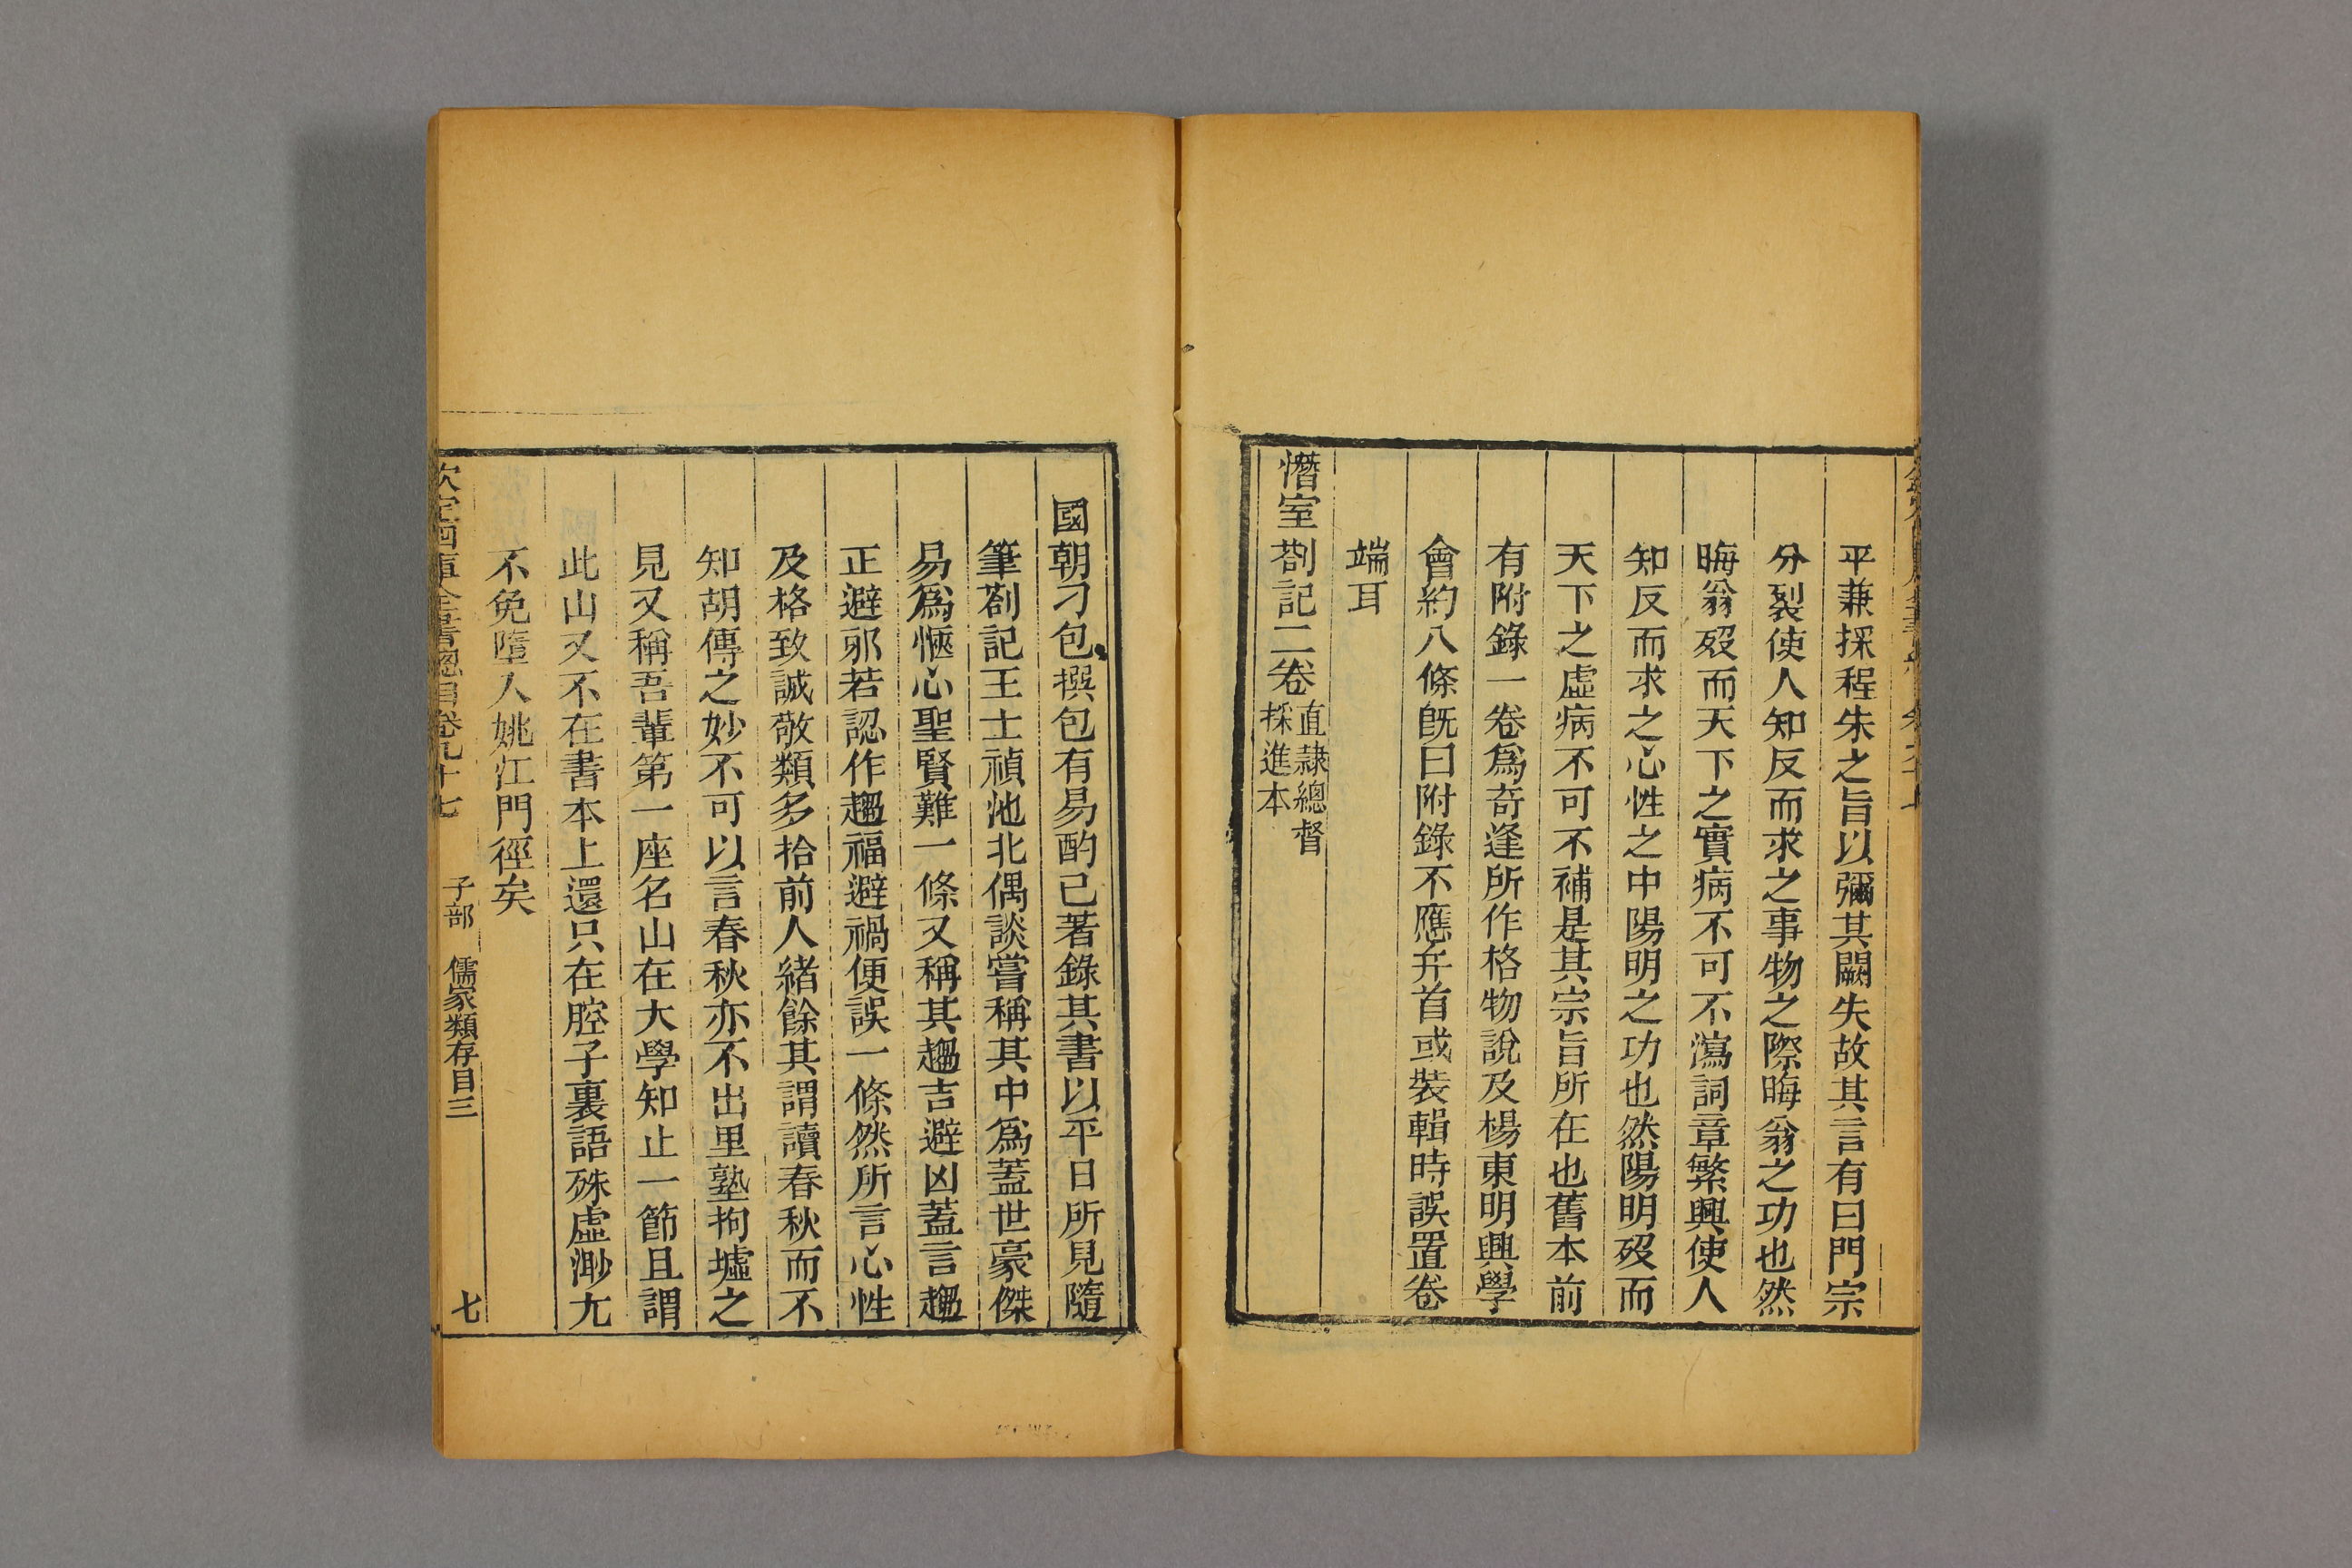 平兼採程朱之旨以彌其闕失故其言有曰門宗
分裂使人知反而求之事物之際晦翁之功也然
晦翁歿而天下之實病不可不瀉詞章繁興使人
知反而求之心性之中陽明之功也然陽明歿而
天下之虛病不可不補是其宗旨所在也舊本前
有附錄一卷爲奇逢所作格物說及楊東明興學
會約八條旣曰附錄不應弁首或裝輯時誤置卷
端耳
潛室劄記二卷
直隷總督
採進本
國朝刁包撰包有易酌已著錄其書以平日所見隨
筆劄記王士禎池北偶談嘗稱其中爲蓋世豪傑
易爲愜心聖賢難一條又稱其趨吉避凶蓋言趨
正避邪若認作趨福避禍便誤一條然所言心性
及格致誠敬類多拾前人緒餘其謂讀春秋而不
知胡傳之妙不可以言春秋亦不出里塾拘墟之
見又稱吾輩第一座名山在大學知止一節且謂
此山又不在書本上還只在腔子裏語殊虛渺尤
不免墮入姚江門徑矣
欽定四庫全書總目卷九十七
子部 儒家類存目三
七